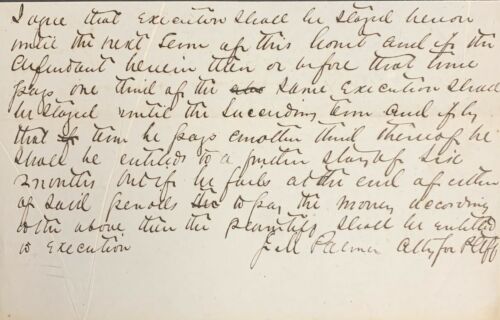 I agree that Execution shall be stayed hereon
until the next Term of this Court and if the
Defendant herein then or before that time
pays one third of the same Execution shall
be stayed until the Succeeding Term and if by
that time he pays another third thereof he
shall be entitled to a further stay of six
months but if he fails at the end of either
of said periods to pay the money according
to the above then the plaintiff shall be entitled
to Execution J M Palmer Atty for Pltff